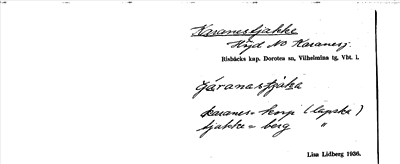 Karanestjakke
Höjd NO Karanesj.
Risbäcks kap. Dorotea sn, Vilhelmina tg, Vbt. l.
gáranastjáka
karanes = korp (lapska)
tjakke = berg "
Lisa Lidberg 1936.